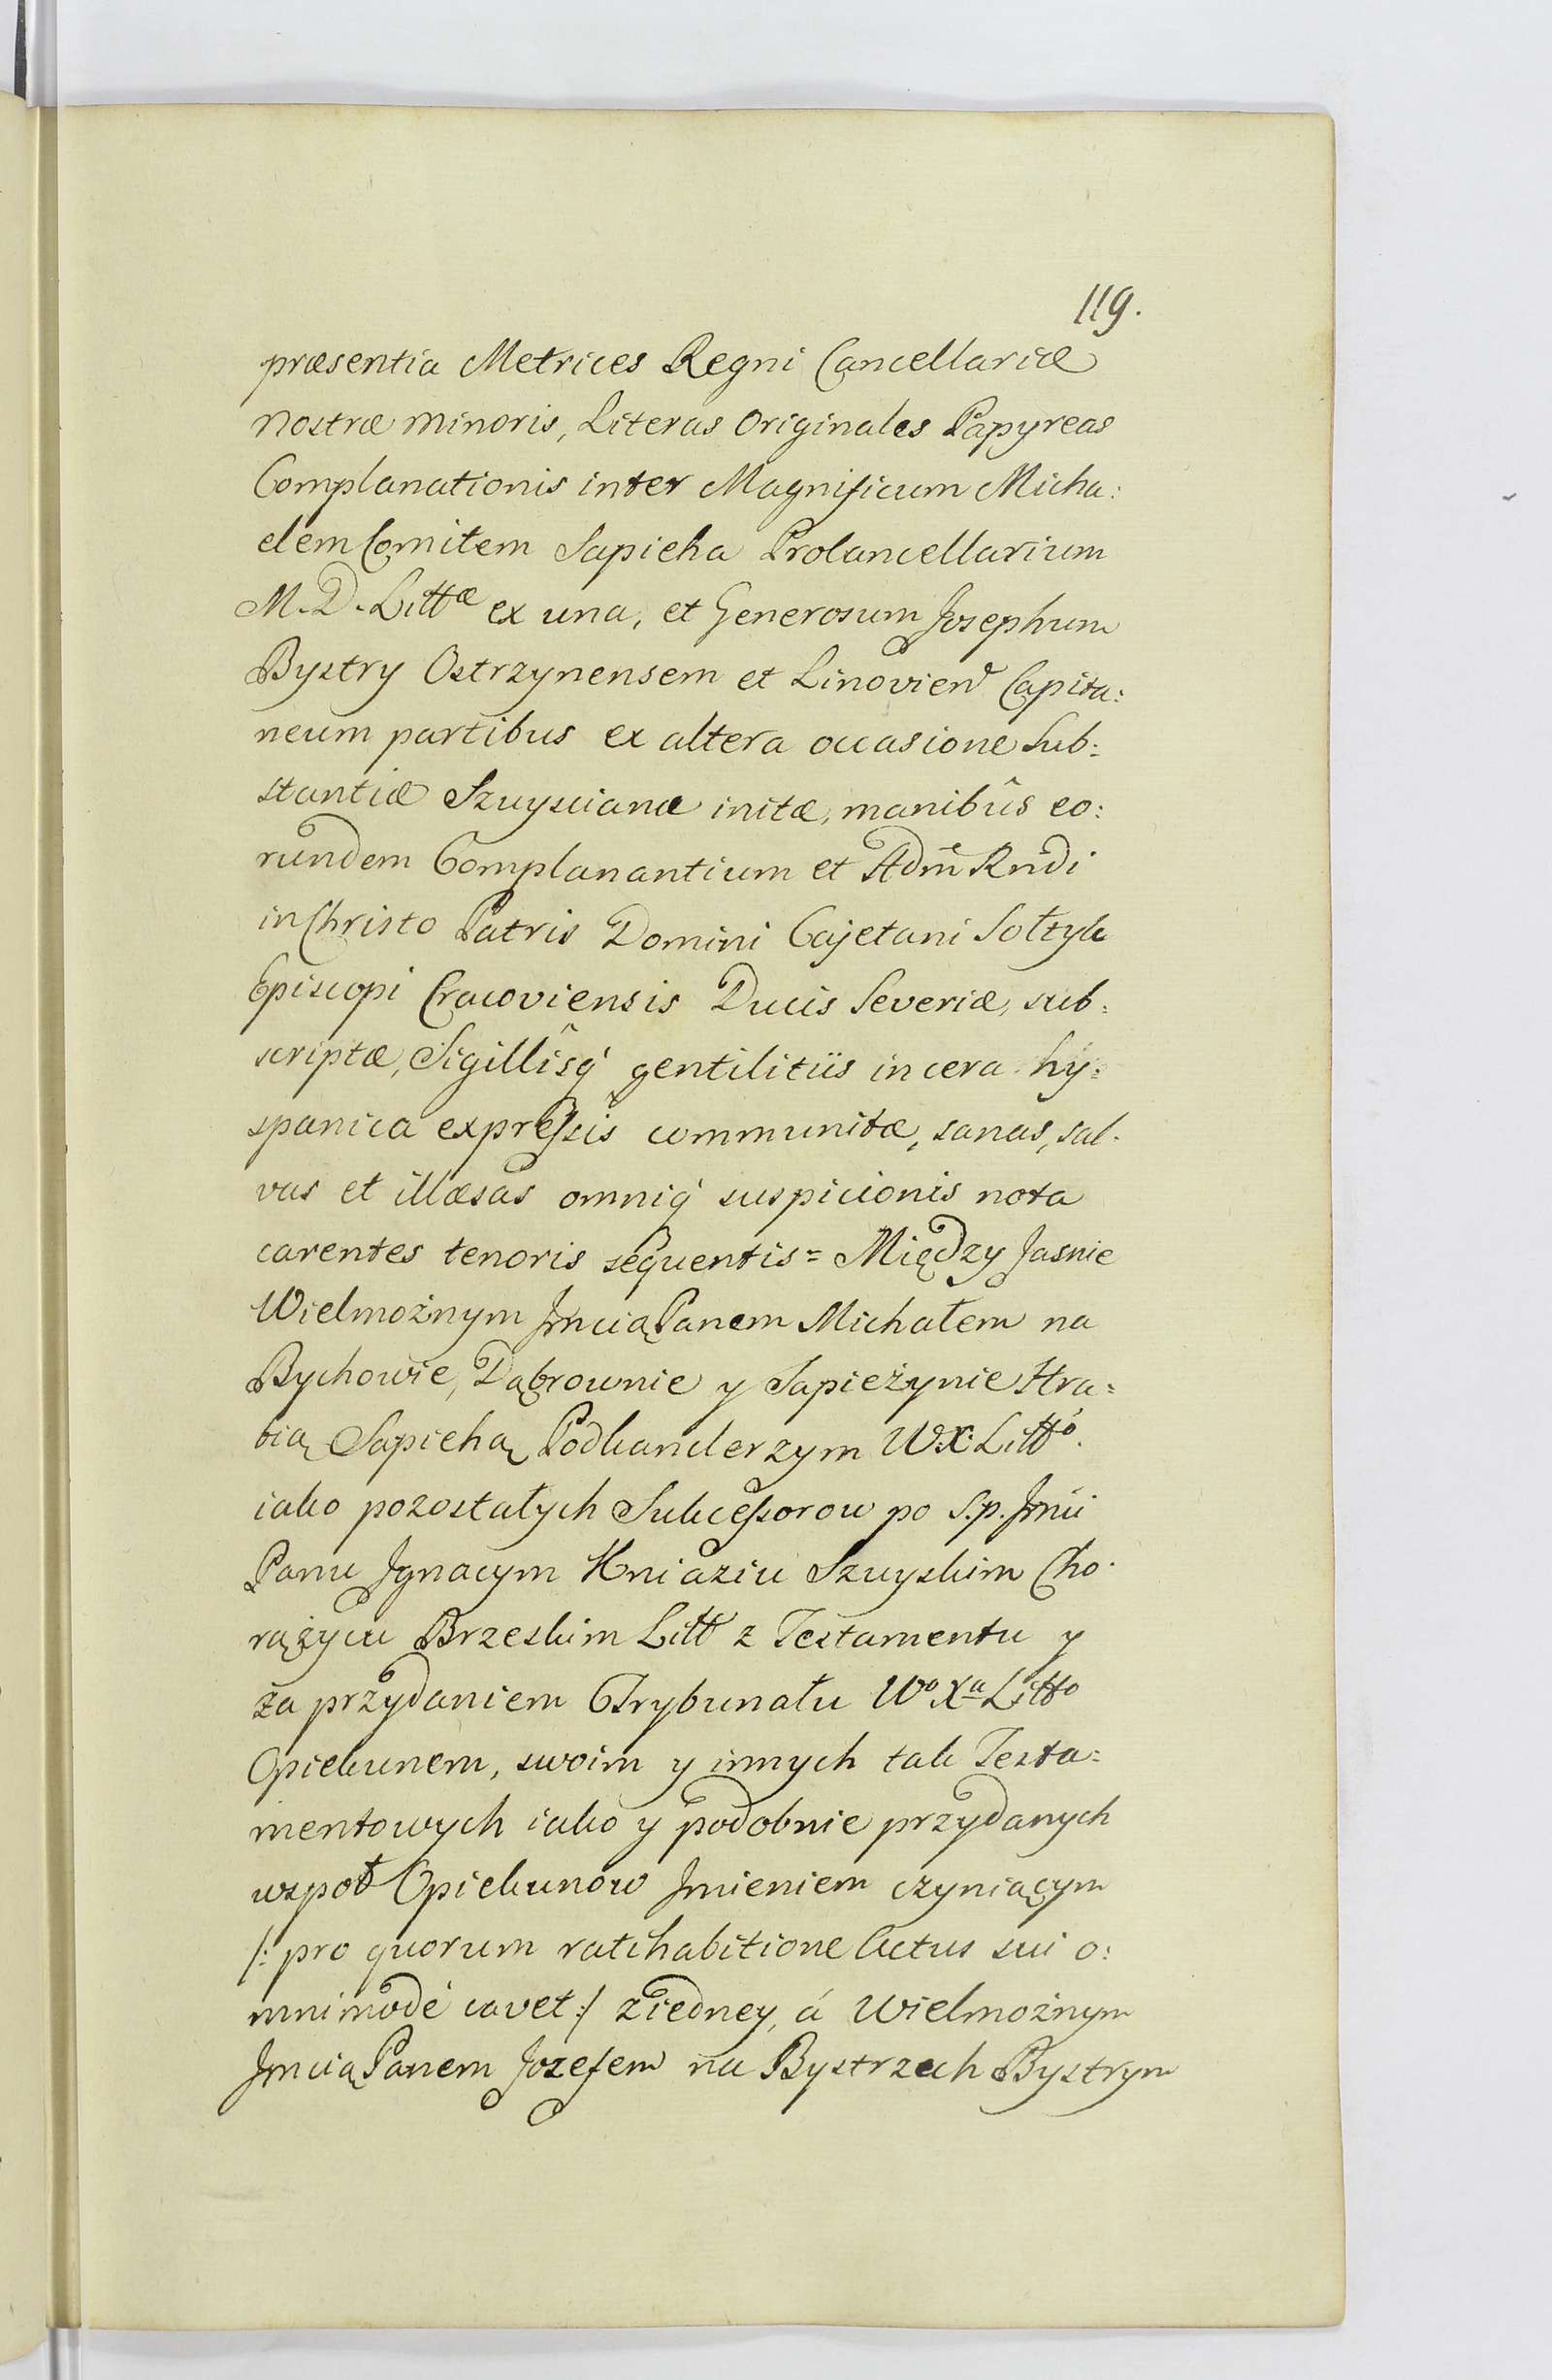 119.
præsentia Metrices Regni Cancellariæ
nostræ minoris, Literas Originales Papyreas
Complanationis inter Magnificum Micha:
elem Comitem Sapieha Procancellarium
M. D. Littæ ex una, et Generosum Josephum
Bystry Ostrzynensem et Linovien Capita:
neum partibus ex altera occasione Sub:
stantiæ Szuyscianæ initæ, manibûs eo:
rundem Complanantium et Adm̃ Rñdi
in Christo Patris Domini Cajetani Sołtyk
Episcopi Cracoviensis Ducis Severiæ, sub:
scriptæ, Sigillîsq́ gentilitiis in cera hy:
spanica expressis communitæ, sanas, sal.
vas et illæsas omniq́ suspicionis nota
carentes tenoris sequentis = Między Jasnie
Wielmożnym Jmcią Panem Michałem na
Bychowie, Dąbrownie y Sapieżynie Hra=
bią Sapiehą Podkanclerzym W: X: Litto.
iako pozostałych Sukcessorow po S. p. Jmci
Panu Jgnacym Kniaziu Szuyskim Cho.
rążycu Brzeskim Litt z Testamentu y
za przydaniem Trybunału Wo Xa Litto
Opiekunem, swoim y innych tak Testa=
mentowych iako y podobnie przydanych
wspoł Opiekunow Jmieniem czyniącym
/: pro quorum ratihabitione Actus sui o:
mnimodè cavet :/ z iedney, á Wielmożnym
Jmcią Panem Jozefem na Bystrzech Bystrym